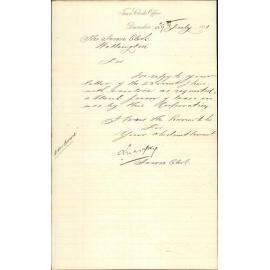 Town Clerk's Office
Dunedin 29th July
The Town Clerk
Wellington
Sir
In reply to your
letter of the instant, I here-
with enclose as requested,
a blank form of lease in
use by this Corporation
I have the honor to be
Sir
Your obedient servant
Town Clerk